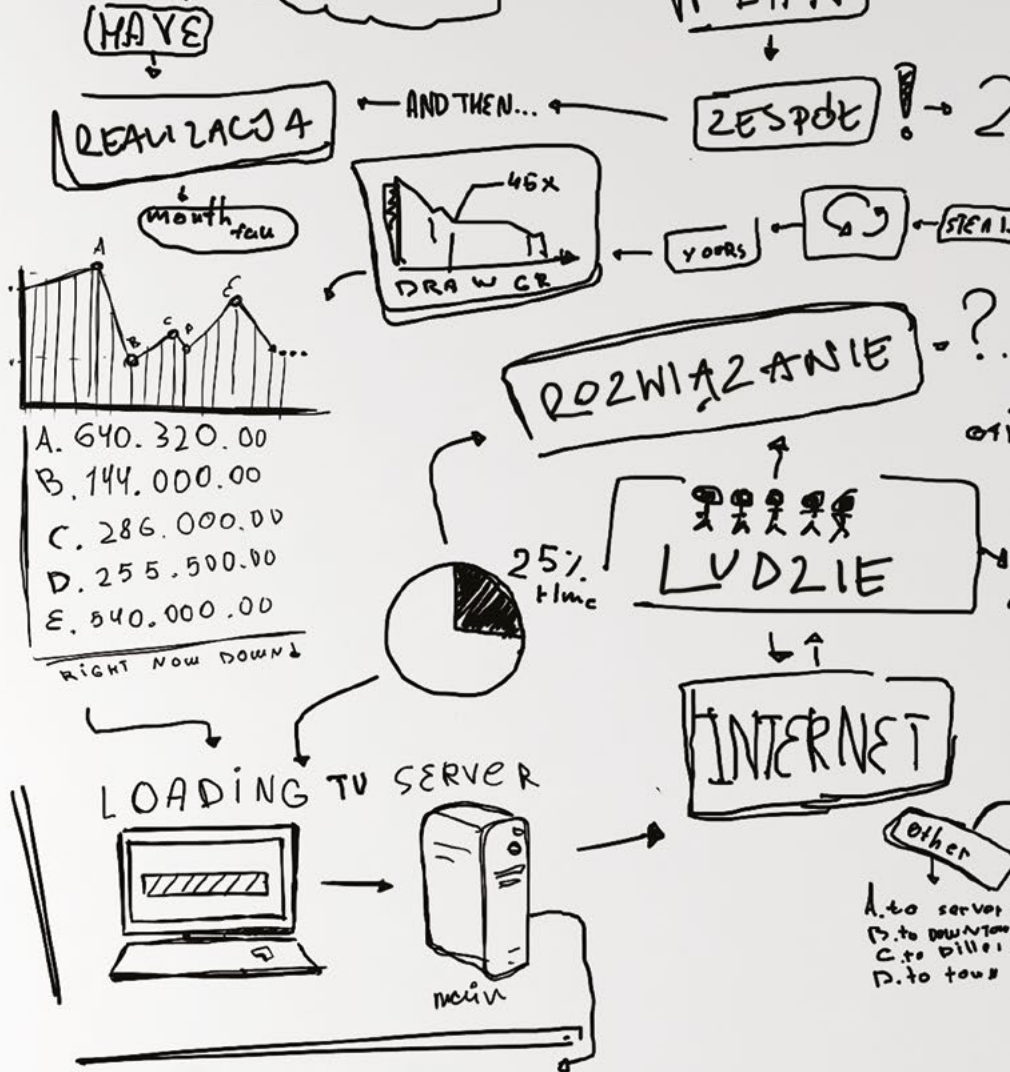 HAVE
REALIZACJA
AND THEN...
ZESPÓŁ ! 2
month
45x
DRAW GR
YOURS
A
B
C
D
E
...
A. 640.320.00
B. 144.000.00
C. 286.000.00
D. 255.500.00
E. 540.000.00
RIGHT NOW DOWN
ROZWIĄZANIE
?
25%
time
LUDZIE
INTERNET
LOADING TV SERVER
main
Other
A. to server
B. to DOWNTOWN
D. to town